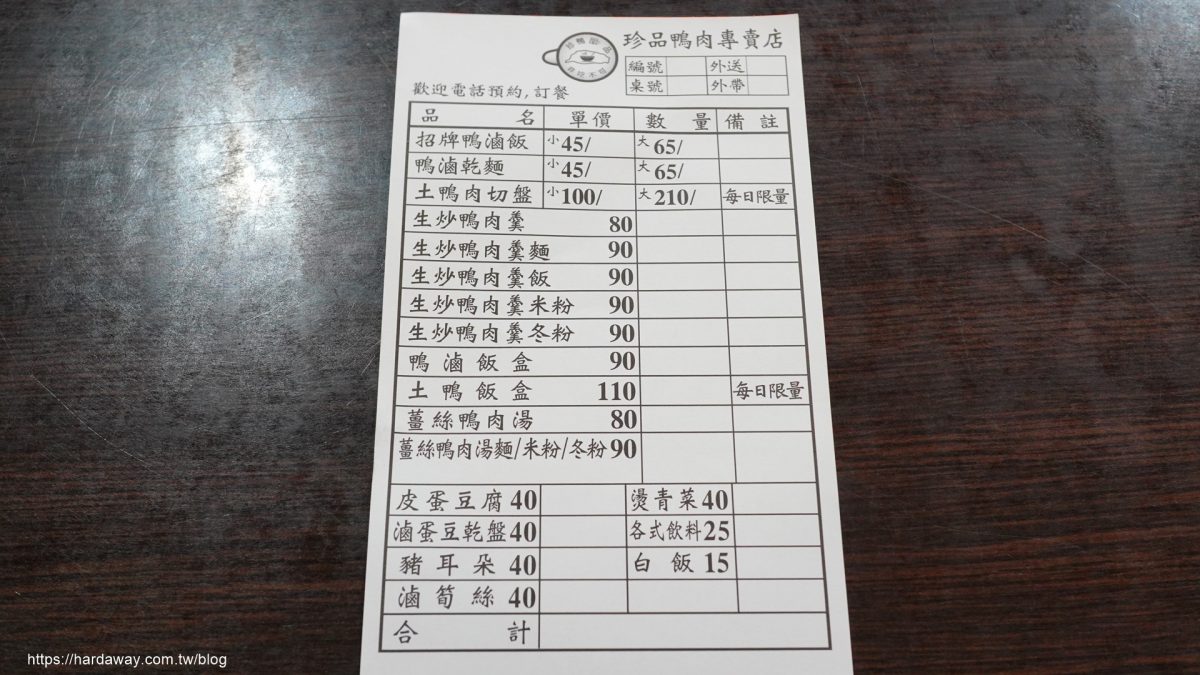 珍品鴨肉專賣店
編號 外送
桌號 外帶
歡迎電話預約,訂餐
品名 單價 數量 備註
招牌鴨滷飯 小45/ 大65/
鴨滷乾麵 小45/ 大65/
土鴨肉切盤 小100/ 大210/ 每日限量
生炒鴨肉羹 80
生炒鴨肉羹麵 90
生炒鴨肉羹飯 90
生炒鴨肉羹米粉 90
生炒鴨肉羹冬粉 90
鴨滷飯盒 90
土鴨飯盒 110 每日限量
薑絲鴨肉湯 80
薑絲鴨肉湯麵/米粉/冬粉 90
皮蛋豆腐 40 燙青菜 40
滷蛋豆乾盤 40 各式飲料 25
豬耳朵 40 白飯 15
滷筍絲 40
合計
https://hardaway.com.tw/blog